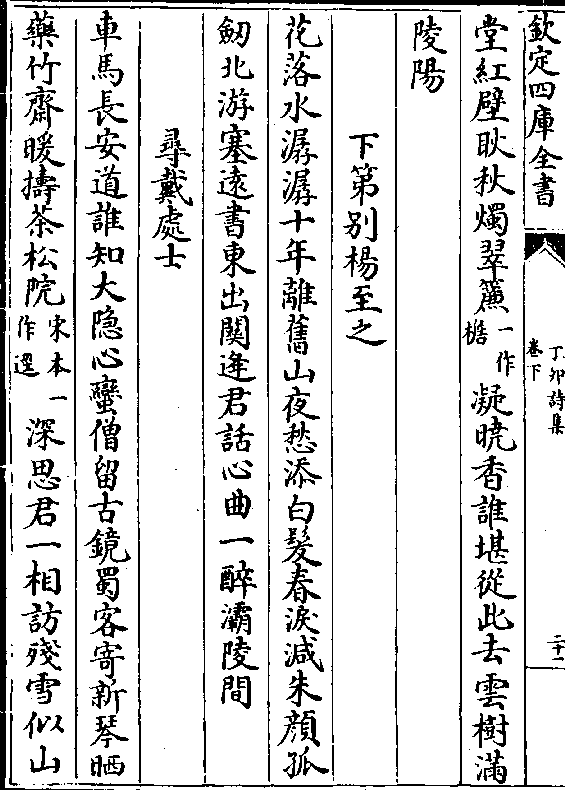 欽定四庫全書
丁卯詩集
卷下
二十一
堂紅壁耿秋燭翠簾一作櫩凝曉香誰堪從此去雲樹滿
陵陽
下第别楊至之
花落水潺潺十年離舊山夜愁添白髪春淚減朱顔孤
劒北游塞遠書東出關逄君話心曲一醉灞陵間
尋戴處士
車馬長安道誰知大隐心蠻僧留古鏡蜀客寄新琴晒
藥竹齋暖擣茶松院宋本一作遲深思君一相訪殘雪似山